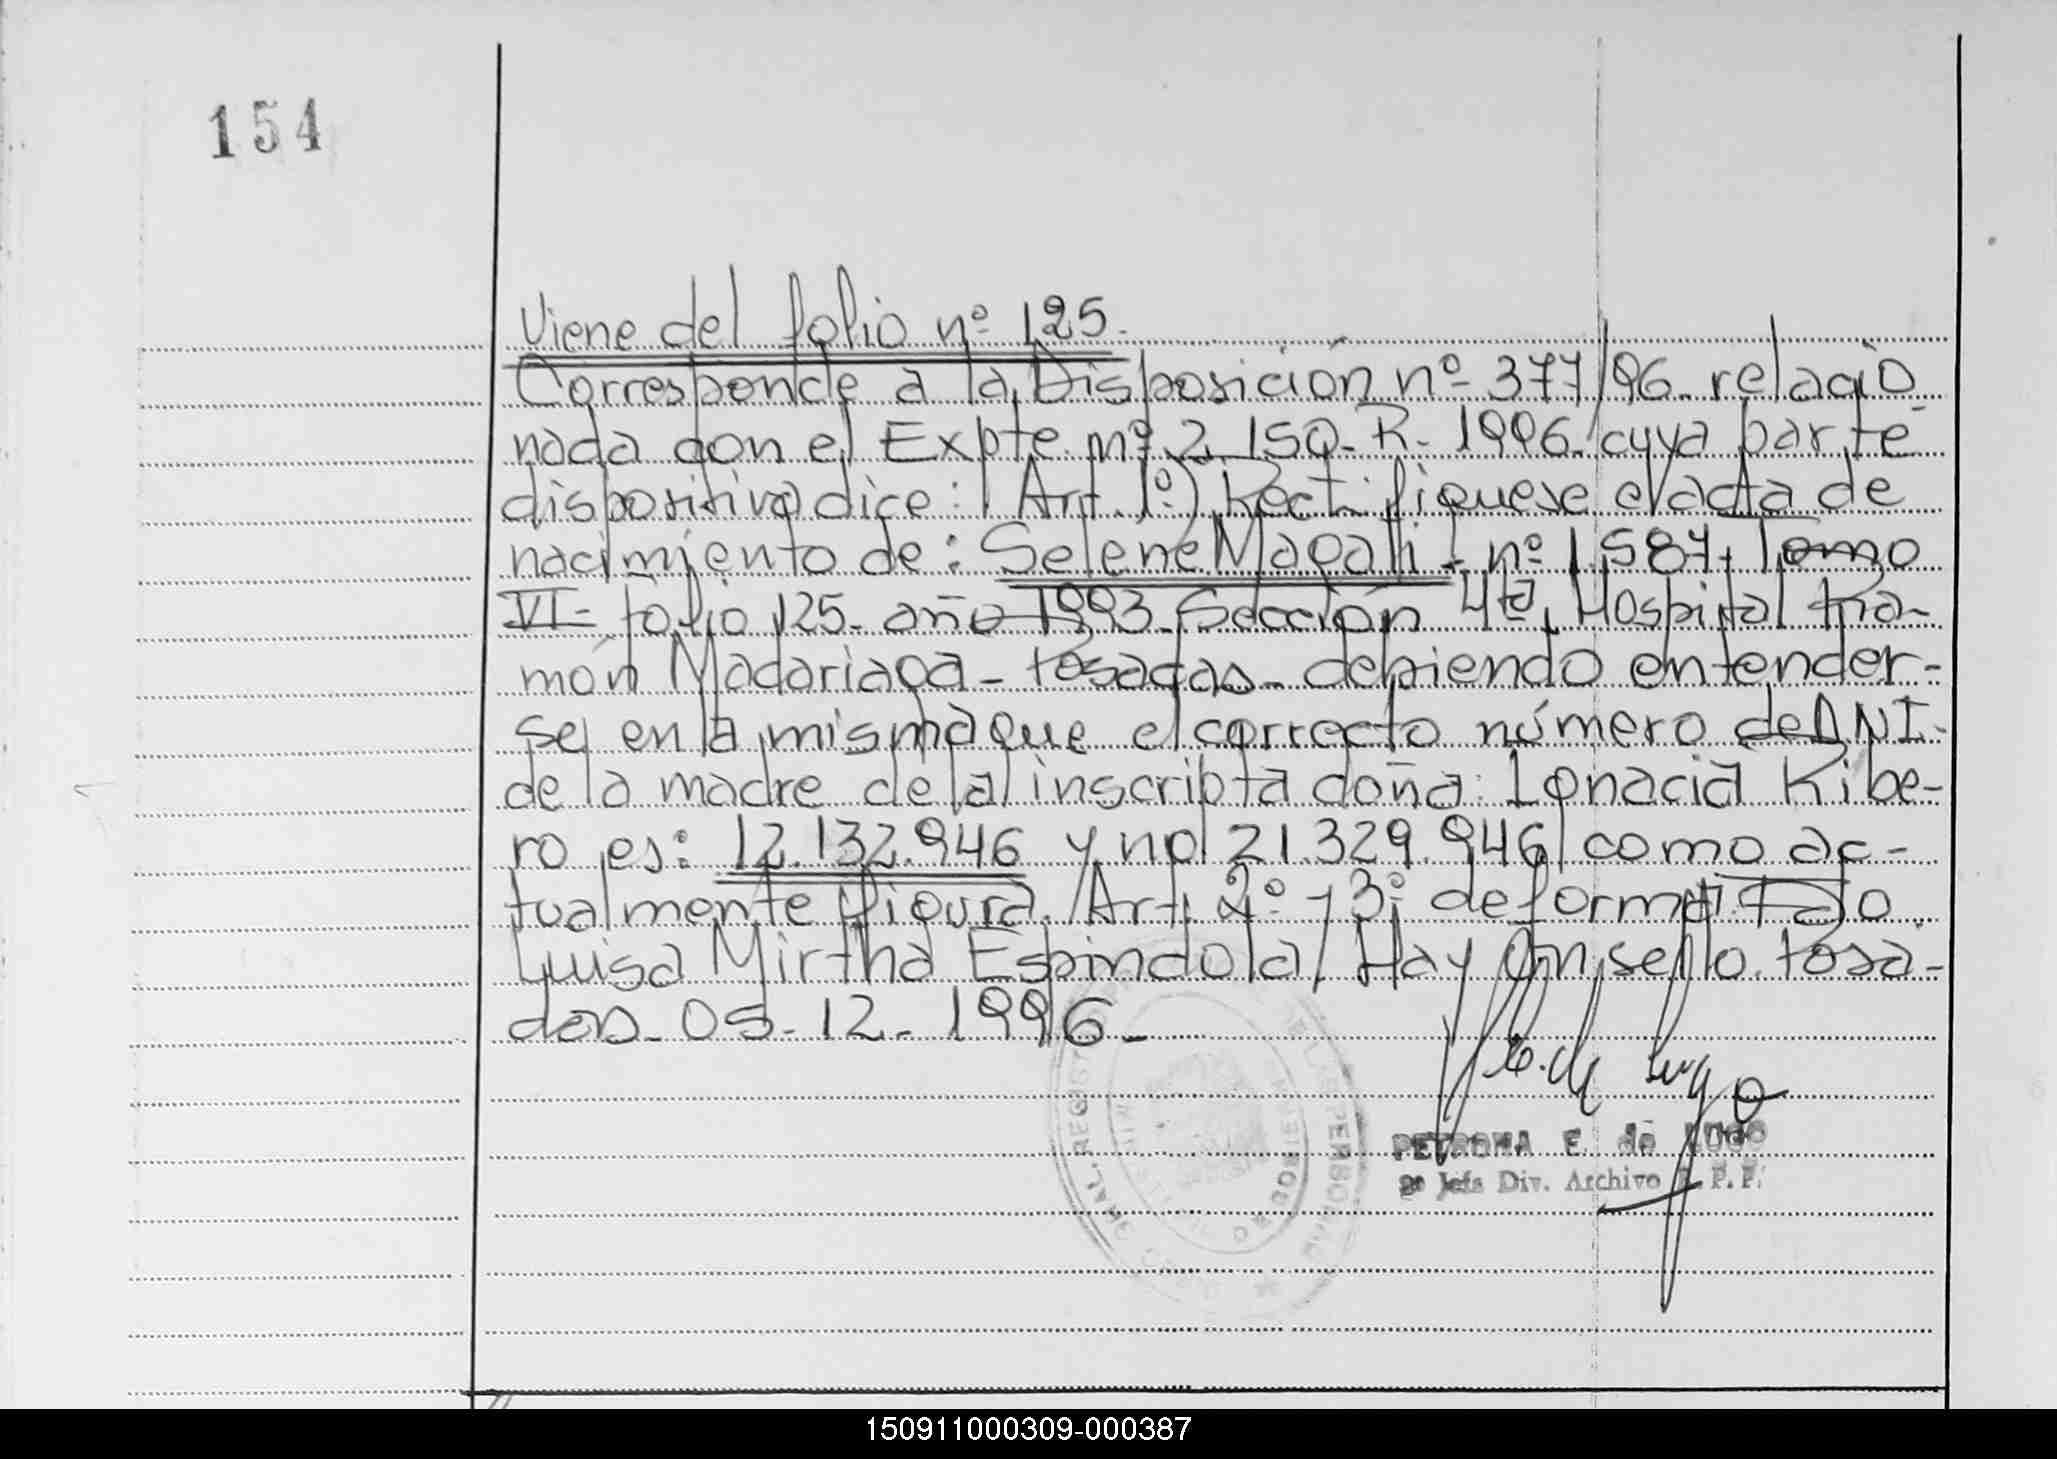 154
Viene del folio nº 125.
Corresponde a la Disposición nº 377/96. relacio_
nada con el Expte. nº 2.150-R-1996. cuya parte
dispositiva dice: Art. 1º) Rectifíquese el acta de
nacimiento de: Selene Magali - nº 1.587. Tomo
VI- folio 125- año 1993. Sección 4ta. Hospital Ra-
món Madariaga - Posadas- debiendo entender-
se en la misma que el correcto número de DNI-
de la madre de la inscripta doña: Ignacia Ribe-
ro es: 12.132.946 y no 21.329.946 como ac-
tualmente figura. Art. 2º y 3º de forma. Fdo
Luisa Mirtha Espindola/ Hay un sello. Posa-
das- 05-12-1996-
PETRONA E. de LUGO
2º Jefa Div. Archivo R.P.P.
150911000309-000387